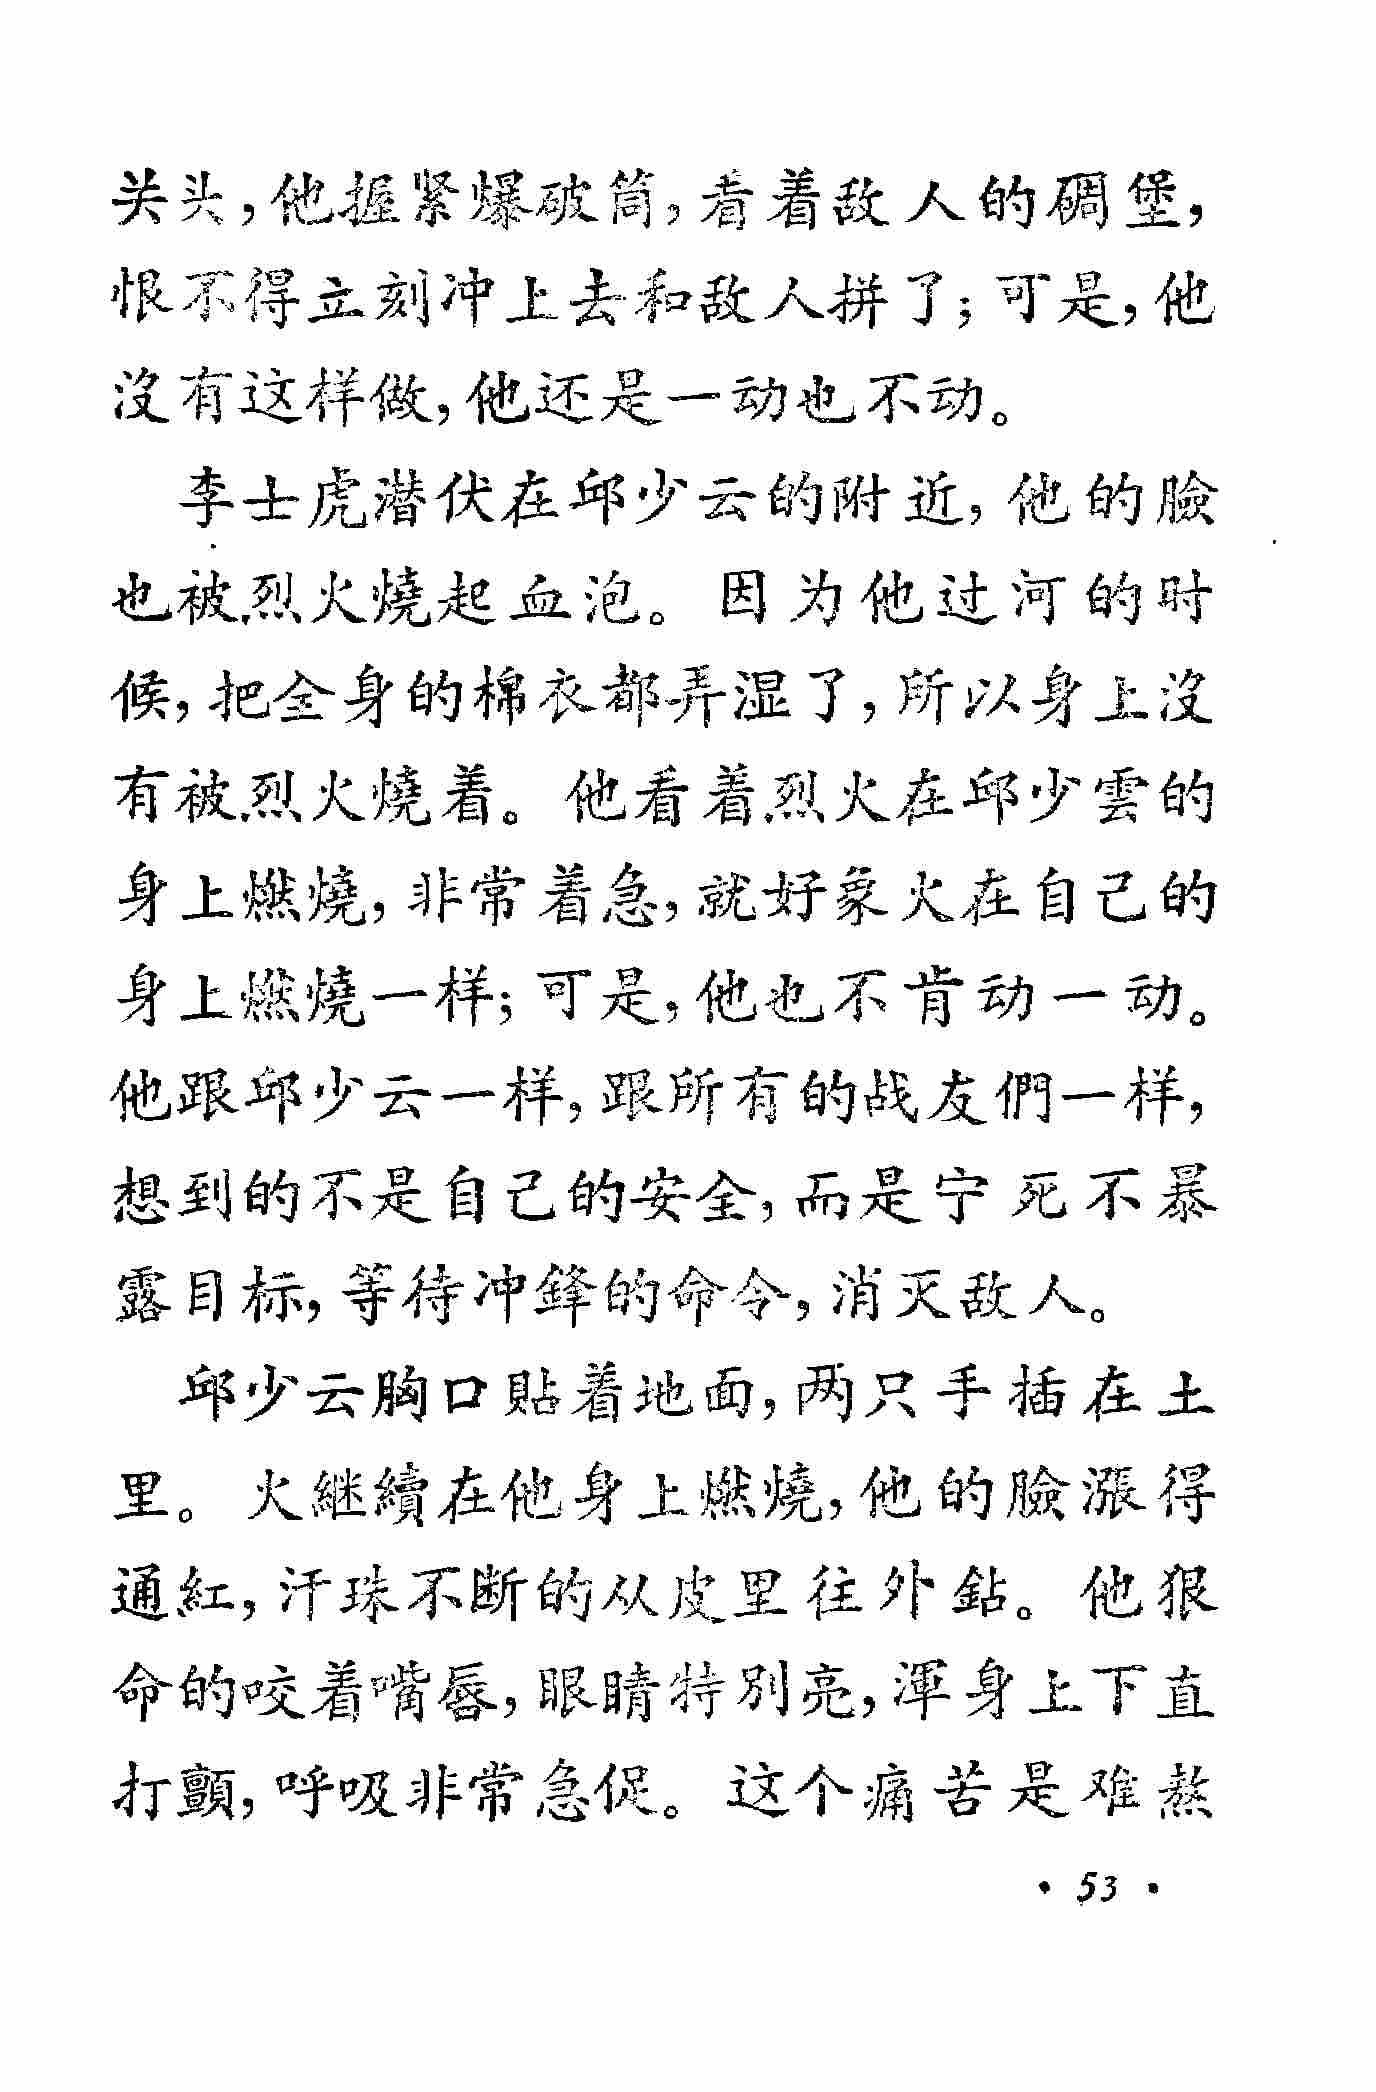 关头，他握紧爆破筒，看着敌人的碉堡，
恨不得立刻冲上去和敌人拼了；可是，他
沒有这样做，他还是一动也不动。
李士虎潜伏在邱少云的附近，他的臉
也被烈火燒起血泡。因为他过河的时
候，把全身的棉衣都弄湿了，所以身上沒
有被烈火燒着。他看着烈火在邱少雲的
身上燃燒，非常着急，就好象火在自己的
身上燃燒一样；可是，他也不肯动一动。
他跟邱少云一样，跟所有的战友們一样，
想到的不是自己的安全，而是宁死不暴
露目标，等待冲鋒的命令，消灭敌人。
邱少云胸口貼着地面，两只手插在土
里。火継續在他身上燃燒，他的臉漲得
通紅，汗珠不断的从皮里往外鉆。他狠
命的咬着嘴唇，眼睛特別亮，渾身上下直
打顫，呼吸非常急促。这个痛苦是难熬
· 53 ·